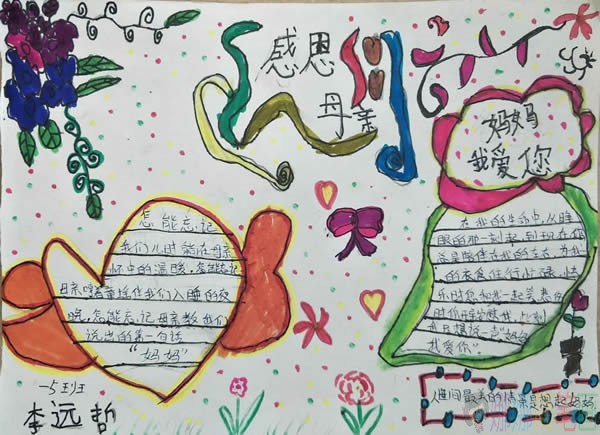 感恩
母亲
妈妈
我爱您
怎能忘记
我们儿时躺在母亲
怀中的温暖，怎能忘记
母亲哼着摇篮我们入睡的夜
晚，怎能忘记母亲教我们
说出的第一句话
"妈妈"
在我的生命中，从睁
眼的那一刻起，到现在您
总是陪伴在我的左右，为我
的衣食住行忙碌，快
乐时您和我一起
时你
我只想说一声"妈妈
我爱你"
人世间最美的情亲是想起妈妈
一5班
李远哲